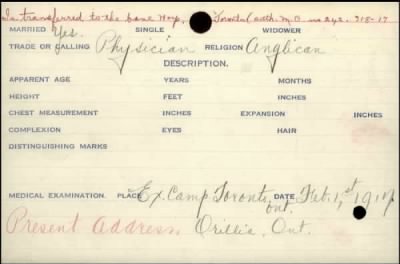 Is transferred to the base Hosp, Toronto (auth. M.O. no 242. 318-17
MARRIED Yes. SINGLE WIDOWER
TRADE OR CALLING Physician RELIGION Anglican
DESCRIPTION.
APPARENT AGE YEARS MONTHS
HEIGHT FEET INCHES
CHEST MEASUREMENT INCHES EXPANSION INCHES
COMPLEXION EYES HAIR
DISTINGUISHING MARKS
MEDICAL EXAMINATION. PLACE Ex. Camp Toronto, Ont. DATE Feb. 1,st 1917
Present Address, Orillia, Ont.